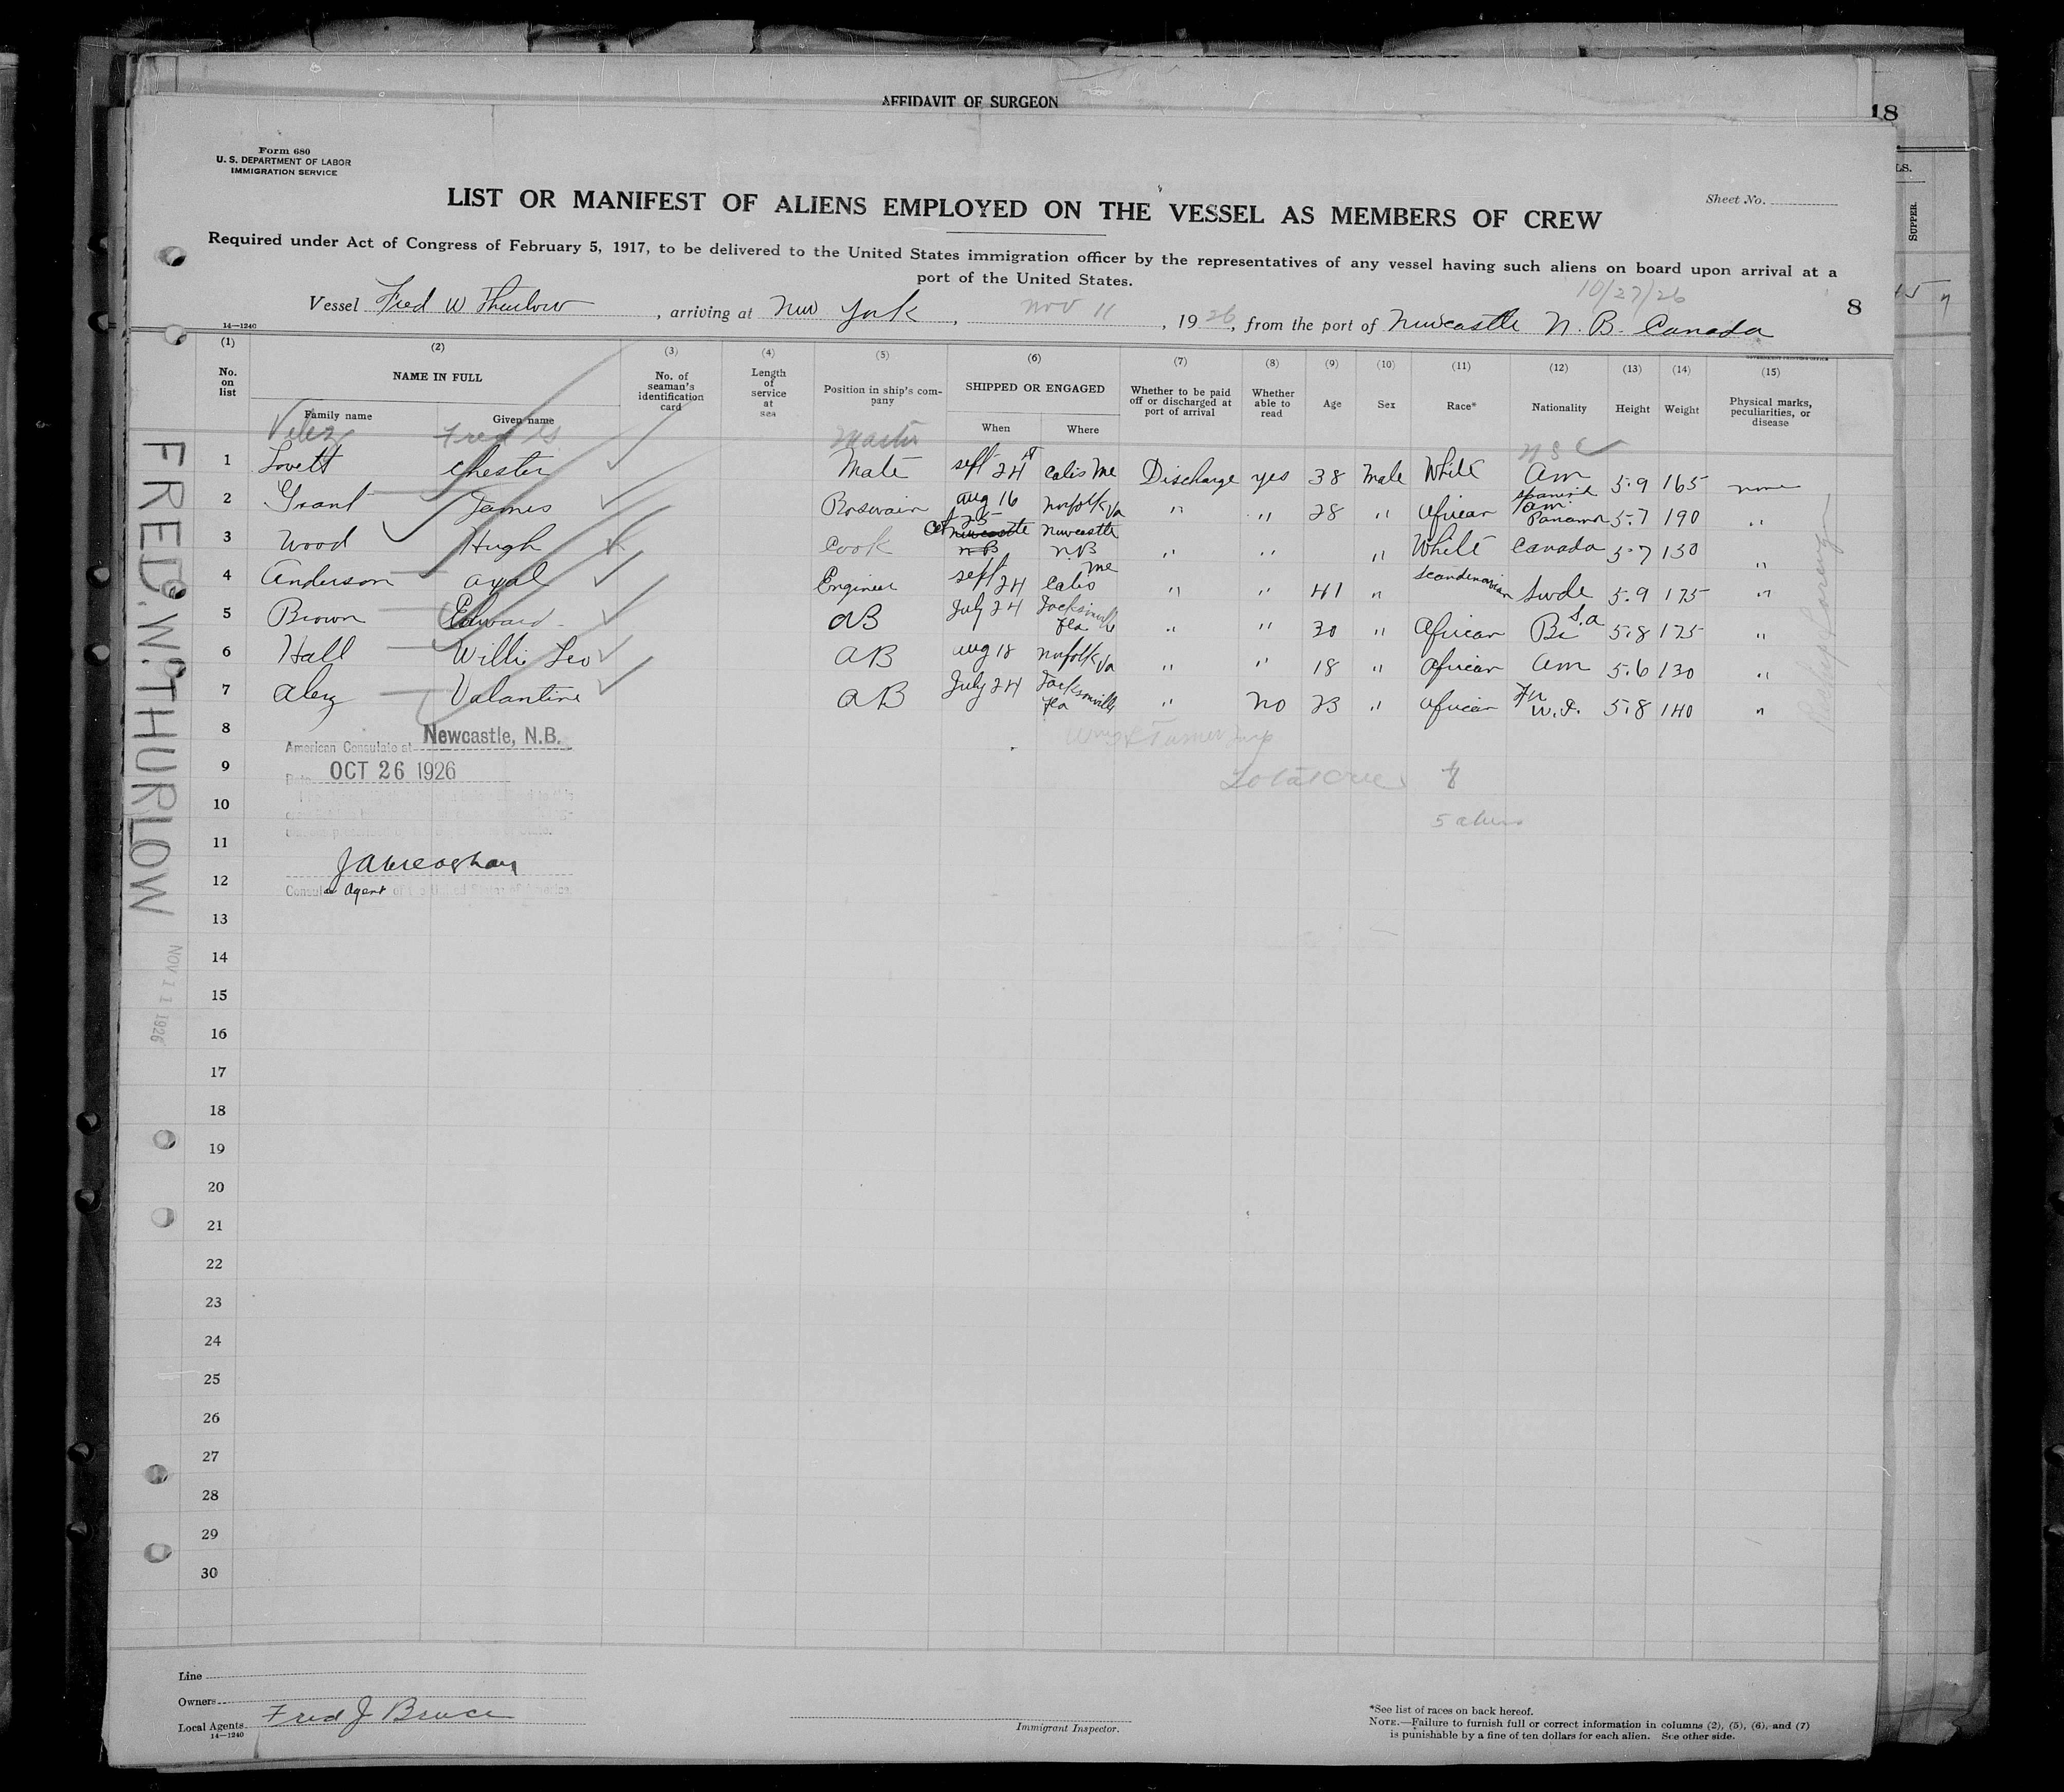 AFFIDAVIT OF SURGEON
18
Form 680
U. S. DEPARTMENT OF LABOR
IMMIGRATION SERVICE
LS.
SUPPER.
Sheet No.
LIST OR MANIFEST OF ALIENS EMPLOYED ON THE VESSEL AS MEMBERS OF CREW
Required under Act of Congress of February 5, 1917, to be delivered to the United States immigration officer by the representatives of any vessel having such aliens on board upon arrival at a
port of the United States.
10/27/26
Vessel Fred W Thurlow, arriving at New York, Nov 11, 1926, from the port of Newcastle N. B. Canada
8
14—1240
(1) (2) (3) (4) (5) (6) (7) (8) (9) (10) (11) (12) (13) (14) (15)
No. on list NAME IN FULL No. of seaman's identification card Length of service at sea Position in ship's company SHIPPED OR ENGAGED Whether to be paid off or discharged at port of arrival Whether able to read Age Sex Race* Nationality Height Weight Physical marks, peculiarities, or disease
Family name Given name When Where
Velez Fred G Master U S C
1 Lovett Chester Mate Sept 24 Calis Me Discharge yes 38 Male White Am 5.9 165 none
2 Grant James Boswain Aug 16 Norfolk Va " " 28 " African Spanish Am Panama 5.7 190 "
3 Wood Hugh Cook Oct 25 Newcastle N.B Newcastle N.B " " " White Canada 5.7 130 "
4 Anderson Axal Engineer Sept 24 Calis Me " " 41 " Scandinavian Swde 5.9 175 "
5 Brown Edward AB July 24 Jacksonville Fla " " 30 " African Br S.a 5.8 175 "
6 Hall Willie Leo AB Aug 18 Norfolk Va " " 18 " African Am 5.6 130 "
7 Alex Valantine AB July 24 Jacksonville Fla " No 23 " African Fr W.I. 5.8 140 "
8
American Consulate at Newcastle, N.B.
9
Date OCT 26 1926
Total Crew 8
10
5 aliens
11
12
Consular Agent of the United States of America.
13
14
15
16
17
18
19
20
21
22
23
24
25
26
27
28
29
30
FRED. W. THURLOW
NOV 11 1926
Line
Owners
Local Agents Fred J Bruce
14—1240
Immigrant Inspector.
*See list of races on back hereof.
NOTE.—Failure to furnish full or correct information in columns (2), (5), (6), and (7)
is punishable by a fine of ten dollars for each alien. See other side.